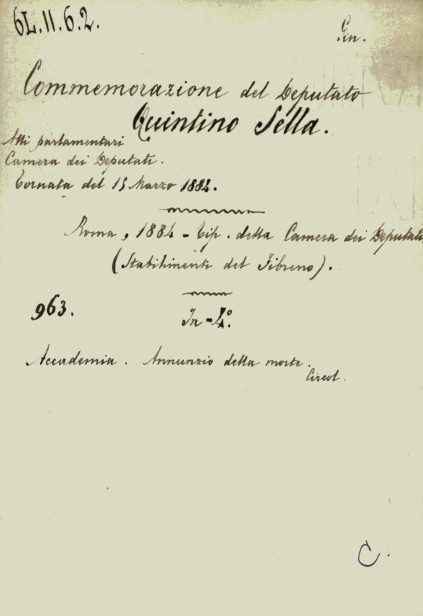 6L.11.6.2.
Gen.
Commemorazione del Deputato
Quintino Sella.
Atti parlamentari
Camera dei Deputati.
Tornata del 15 Marzo 1884.
Roma, 1884 - Tip. della Camera dei Deputati
(Stabilimenti del Fibreno).
963.
In-4º.
Accademia. Annunzio della morte.
Circol.
C.